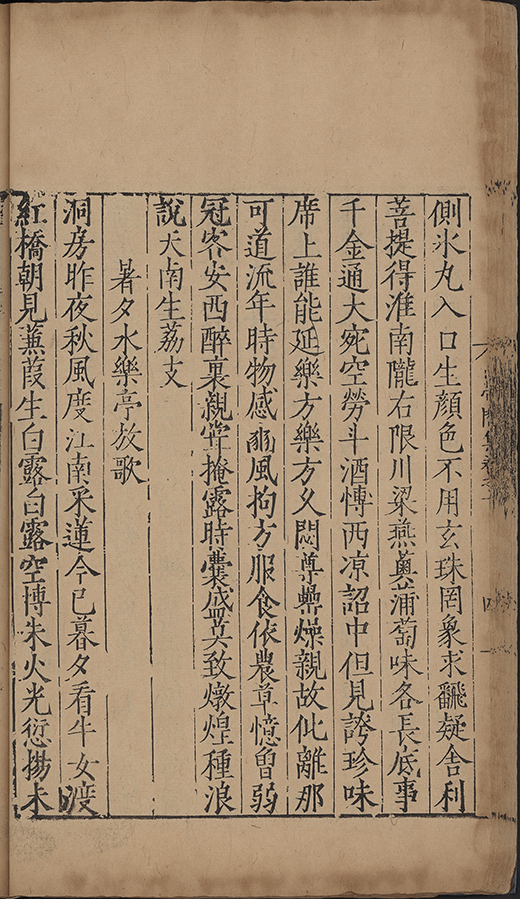 側氷丸入口生顏色不用玄珠罔象求飜疑舍利
菩提得淮南隴右限川梁燕薁蒲萄味各長底事
千金通大宛空勞斗酒慱西凉詔中但見誇珍味
席上誰能延樂方樂方乆悶尊罍燥親故仳離那
可道流年時物感豳風拘方服食依農草憶曾弱
冠客安西醉裏親嘗掩露時囊盛莫致燉煌種浪
說天南生荔支
暑夕水樂亭放歌
洞房昨夜秋風度江南采蓮今已暮夕看牛女渡
紅橋朝見蒹葭生白露白露空慱朱火光愆揚未
四